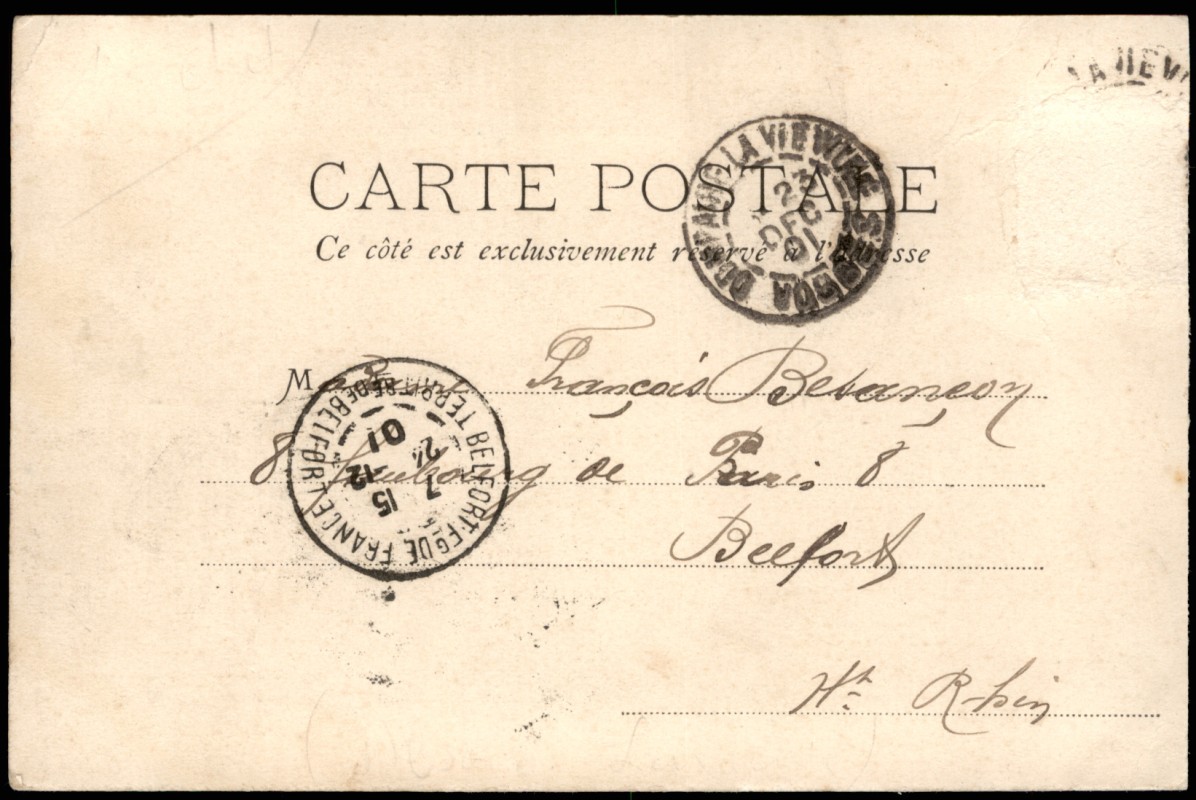 CARTE POSTALE
Ce côté est exclusivement réservé à l'adresse
LA VIEW
23
DEC
01
M François Besançon
8 Faubourg de Paris 8
Belfort
Ht Rhin
BELFORT-FG DE FRANCE
TERRIT RE DE BELFORT
7 24
15 12
01